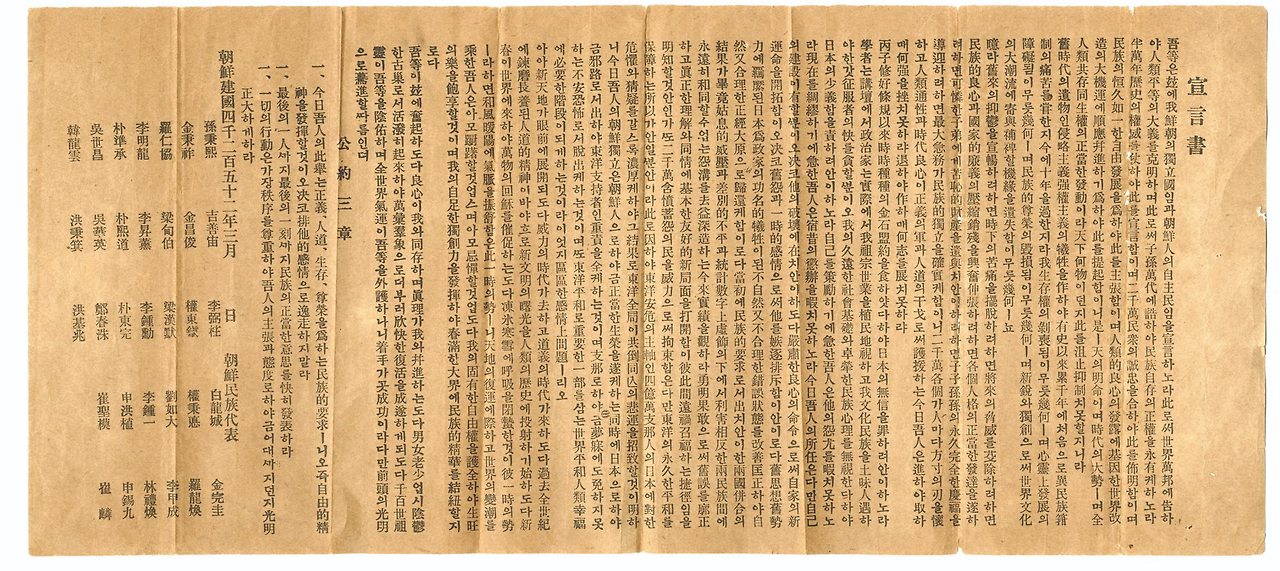 宣言書
吾等은玆에我鮮朝의獨立國임과朝鮮人의自主民임을宣言하노라此로써世界萬邦에告하
야人類平等의大義를克明하며此로써子孫萬代에誥하야民族自存의正權을永有케하노라
半萬年歷史의權威를仗하야此를宣言함이며二千萬民衆의誠忠을合하야此를佈明함이며
民族의恒久如一한自由發展을爲하야此를主張함이며人類的良心의發露에基因한世界改
造의大機運에順應幷進하기爲하야此를提起함이니是ㅣ天의明命이며時代의大勢ㅣ며全
人類共存同生權의正當한發動이라天下何物이던지此를沮止抑制치못할지니라
舊時代의遺物인侵略主義强權主義의犧牲을作하야有史以來累千年에처음으로異民族箝
制의痛苦를嘗한지今에十年을過한지라我生存權의剝喪됨이무릇幾何ㅣ며心靈上發展의
障礙됨이무릇幾何ㅣ며民族的尊榮의毀損됨이무릇幾何ㅣ며新銳와獨創으로써世界文化
의大潮流에寄與補裨할機緣을遺失함이무릇幾何ㅣ뇨
噫라舊來의抑鬱을宣暢하려하면時下의苦痛을擺脫하려하면將來의脅威를芟除하려하면
民族的良心과國家的廉義의壓縮銷殘을興奮伸張하려하면各個人格의正當한發達을遂하
려하면可憐한子弟에게苦恥的財産을遺與치안이하려하면子子孫孫의永久完全한慶福을
導迎하려하면最大急務가民族的獨立을確實케함이니二千萬各個가人마다方寸의刃을懷
하고人類通性과時代良心이正義의軍과人道의干戈로써護援하는今日吾人은進하야取하
매何强을挫치못하랴退하야作하매何志를展치못하랴
丙子修好條規以來時時種種의金石盟約을食하얏다하야日本의無信을罪하려안이하노라
學者는講壇에서政治家는實際에서我祖宗世業을植民地視하고我文化民族을土昧人遇하
야한갓征服者의快를貪할뿐이오我의久遠한社會基礎와卓犖한民族心理를無視한다하야
日本의少義함을責하려안이하노라自己를策勵하기에急한吾人은他의怨尤를暇치못하노
라現在를綢繆하기에急한吾人은宿昔의懲辦을暇치못하노라今日吾人의所任은다만自己
의建設이有할뿐이오決코他의破壞에在치안이하도다嚴肅한良心의命令으로써自家의新
運命을開拓함이오決코舊怨과一時的感情으로써他를嫉逐排斥함이안이로다舊思想舊勢
力에羈縻된日本爲政家의功名的犧牲이된不自然又不合理한錯誤狀態를改善匡正하야自
然又合理한正經大原으로歸還케함이로다當初에民族的要求로서出치안이한兩國倂合의
結果가畢竟姑息的威壓과差別的不平과統計數字上虛飾의下에서利害相反한兩民族間에
永遠히和同할수업는怨溝를去益深造하는今來實績을觀하라勇明果敢으로써舊誤를廓正
하고眞正한理解와同情에基本한友好的新局面을打開함이彼此間遠禍召福하는捷徑임을
明知할것안인가또二千萬含憤蓄怨의民을威力으로써拘束함은다만東洋의永久한平和를
保障하는所以가안일뿐안이라此로因하야東洋安危의主軸인四億萬支那人의日本에對한
危懼와猜疑를갈스록濃厚케하야그結果로東洋全局이共倒同亡의悲運을招致할것이明하
니今日吾人의朝鮮獨立은朝鮮人으로하야금正當한生榮을遂케하는同時에日本으로하야
금邪路로서出하야東洋支持者인重責을全케하는것이며支那로하야금夢寐에도免하지못
하는不安恐怖로서脫出케하는것이며또東洋平和로重要한一部를삼는世界平和人類幸福
에必要한階段이되게하는것이라이엇지區區한感情上問題ㅣ리오
아아新天地가眼前에展開되도다威力의時代가去하고道義의時代가來하도다過去全世紀
에鍊磨長養된人道的精神이바야흐로新文明의曙光을人類의歷史에投射하기始하도다新
春이世界에來하야萬物의回穌를催促하는도다凍氷寒雪에呼吸을閉蟄한것이彼一時의勢
ㅣ라하면和風暖陽에氣脈을振舒함은此一時의勢ㅣ니天地의復運에際하고世界의變潮를
乘한吾人은아모躊躇할것업스며아모忌憚할것업도다我의固有한自由權을護全하야生旺
의樂을飽享할것이며我의自足한獨創力을發揮하야春滿한大界에民族的精華를結紐할지
로다
吾等이玆에奮起하도다良心이我와同存하며眞理가我와幷進하는도다男女老少업시陰鬱
한古巢로서活潑히起來하야萬彙羣象으로더부러欣快한復活을成遂하게되도다千百世祖
靈이吾等을陰佑하며全世界氣運이吾等을外護하나니着手가곳成功이라다만前頭의光明
으로驀進할따름인뎌
公約三章
一、今日吾人의此擧는正義、人道、生存、尊榮을爲하는民族的要求ㅣ니오즉自由的精
神을發揮할것이오決코排他的感情으로逸走하지말라
一、最後의一人까지最後의一刻까지民族의正當한意思를快히發表하라
一、一切의行動은가장秩序를尊重하야吾人의主張과態度로하야금어대까지던지光明
正大하게하라
朝鮮建國四千二百五十二年三月 日 朝鮮民族代表
孫秉熙 吉善宙 李弼柱 白龍城 金完圭
金秉祚 金昌俊 權東鎭 權秉悳 羅龍煥
羅仁協 梁甸伯 梁漢默 劉如大 李甲成
李明龍 李昇薰 李鍾勳 李鍾一 林禮煥
朴準承 朴熙道 朴東完 申洪植 申錫九
吳世昌 吳華英 鄭春洙 崔聖模 崔麟
韓龍雲 洪秉箕 洪基兆